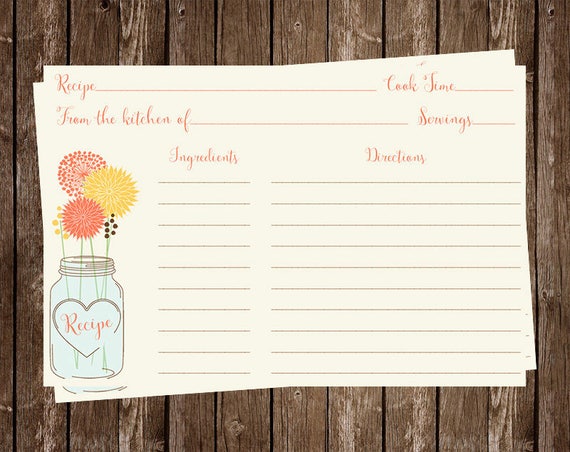 Recipe Cook Time
From the kitchen of Servings
Ingredients Directions
Recipe